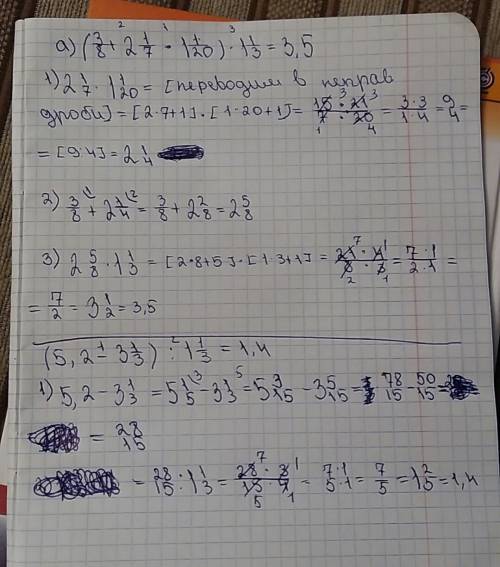 а) (3/8 + 2 1/7 · 1 1/20) · 1 1/3 = 3,5
1) 2 1/7 · 1 1/20 = [переводим в неправ
дроби] = [2·7+1] · [1·20+1] = 15/7 · 21/20 = 3·3/1·4 = 9/4 =
= [9:4] = 2 1/4
2) 3/8 + 2 1/4 = 3/8 + 2 2/8 = 2 5/8
3) 2 5/8 · 1 1/3 = [2·8+5] · [1·3+1] = 21/8 · 4/3 = 7·1/2·1 =
= 7/2 = 3 1/2 = 3,5
(5,2 - 3 1/3) : 1 1/3 = 1,4
1) 5,2 - 3 1/3 = 5 1/5 - 3 1/3 = 5 3/15 - 3 5/15 = 78/15 - 50/15 =
= 28/15
= 28/15 : 1 1/3 = 28·3/15·4 = 7·1/5·1 = 7/5 = 1 2/5 = 1,4